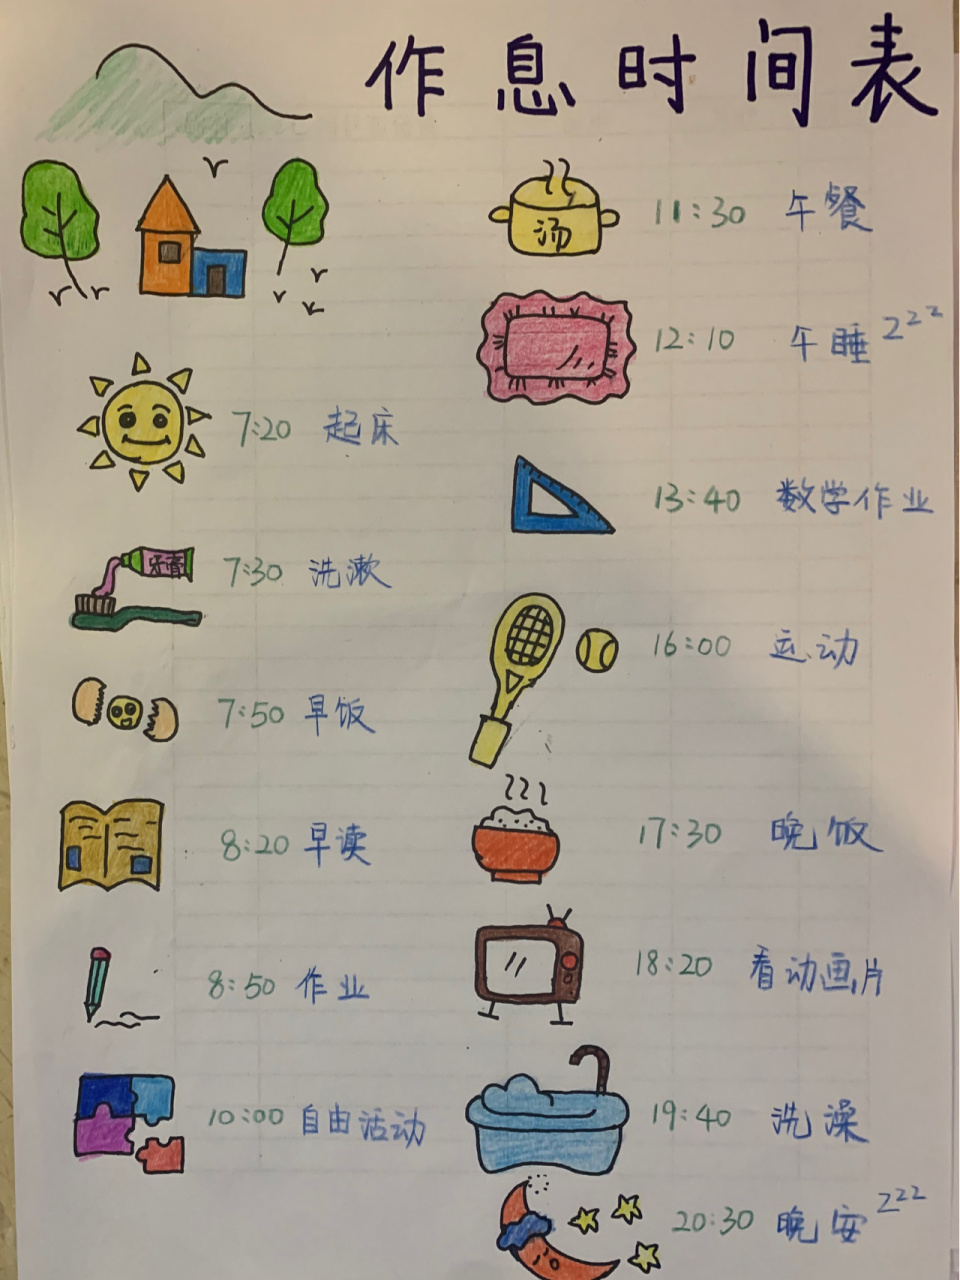 作息时间表
7:20 起床
牙膏
7:30 洗漱
7:50 早饭
8:20 早读
8:50 作业
10:00 自由活动
汤
11:30 午餐
12:10 午睡 zzz
13:40 数学作业
16:00 运动
17:30 晚饭
18:20 看动画片
19:40 洗澡
20:30 晚安 zzz